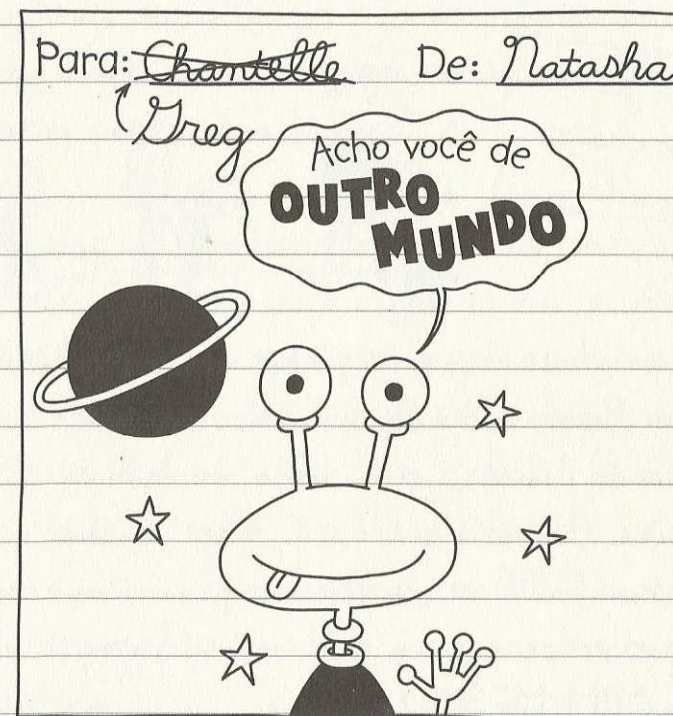 Para: Chantelle De: Natasha
Greg
Acho você de
OUTRO
MUNDO